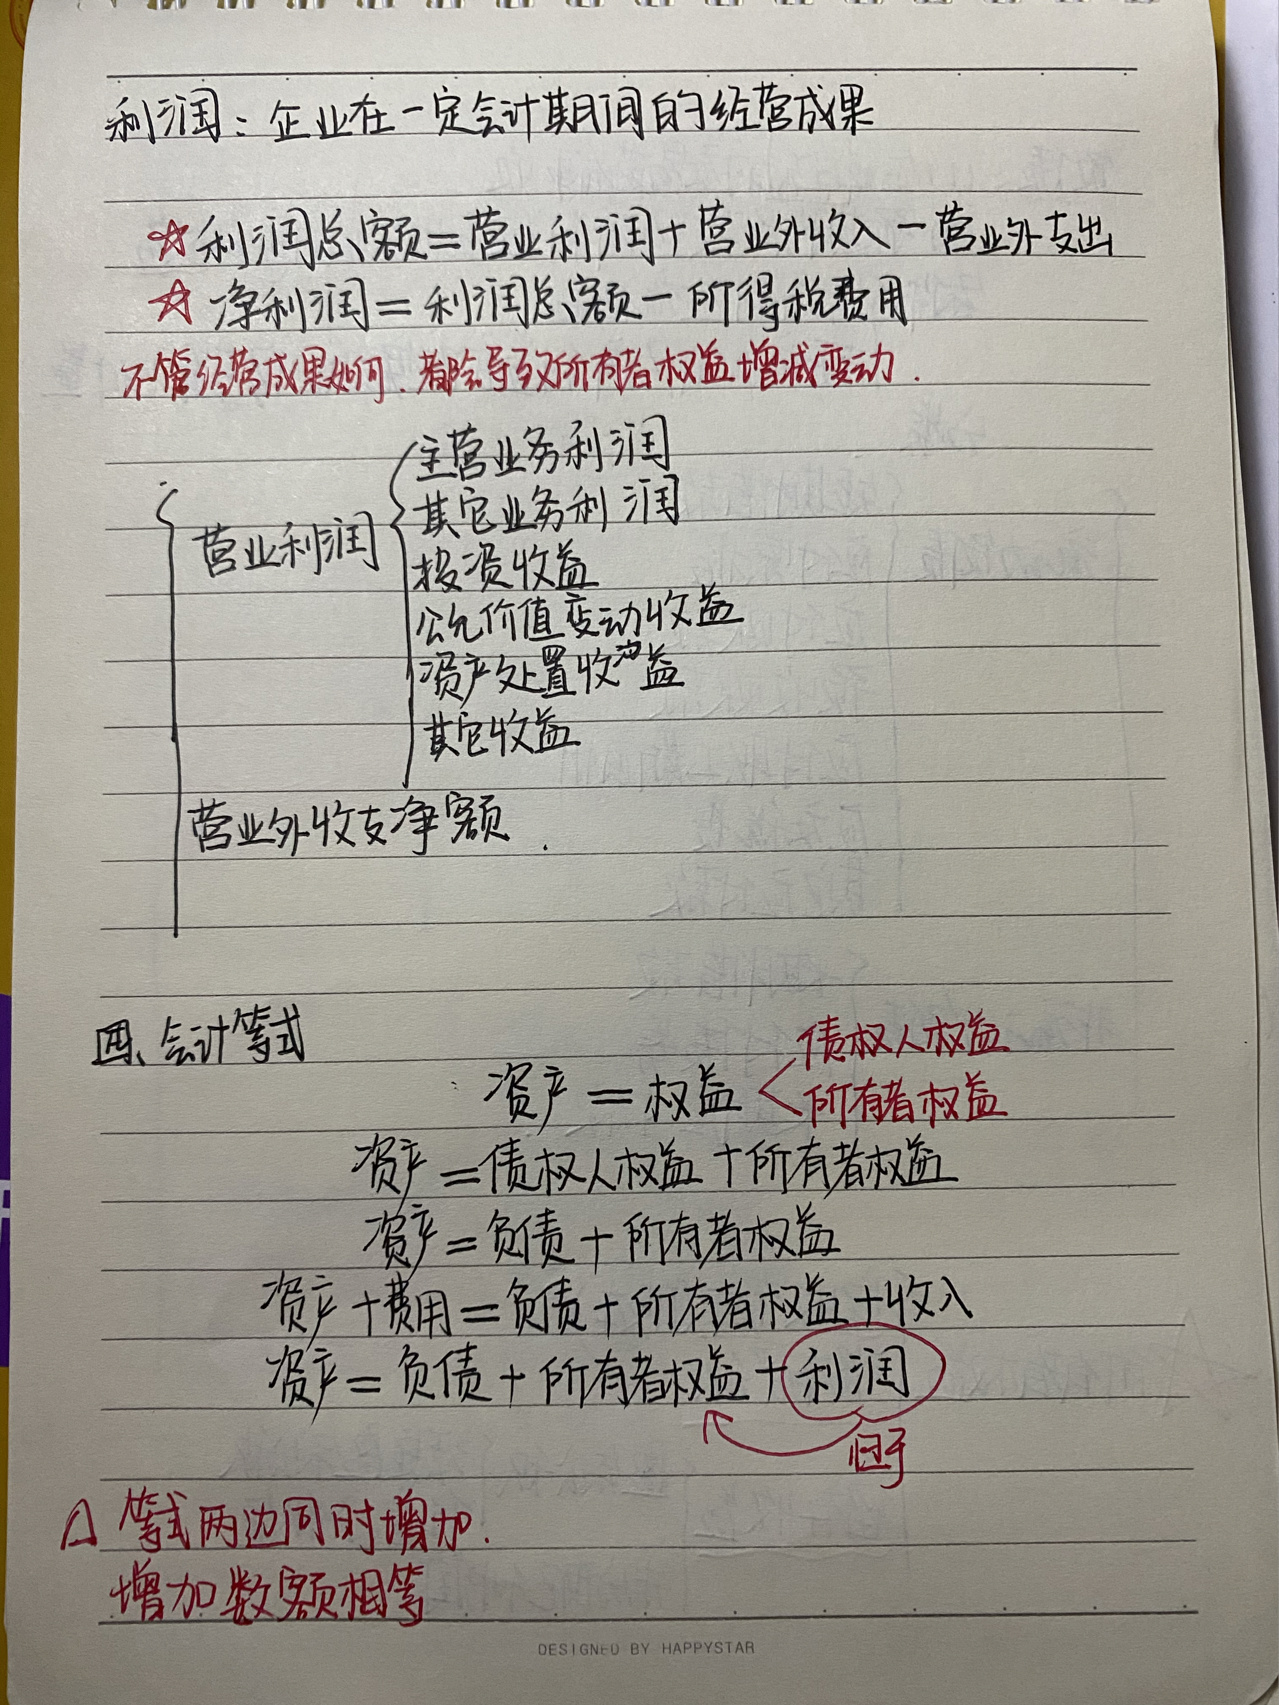 利润：企业在一定会计期间的经营成果
☆利润总额=营业利润+营业外收入-营业外支出
☆ 净利润=利润总额-所得税费用
不管经营成果如何.都会导致所有者权益增减变动.
营业利润
主营业务利润
其它业务利润
投资收益
公允价值变动收益
资产处置收益
其它收益
营业外收支净额.
四、会计等式
资产=权益
债权人权益
所有者权益
资产=债权人权益+所有者权益
资产=负债+所有者权益
资产+费用=负债+所有者权益+收入
资产=负债+所有者权益+利润
归于
△ 等式两边同时增加.
增加数额相等
DESIGNED BY HAPPYSTAR